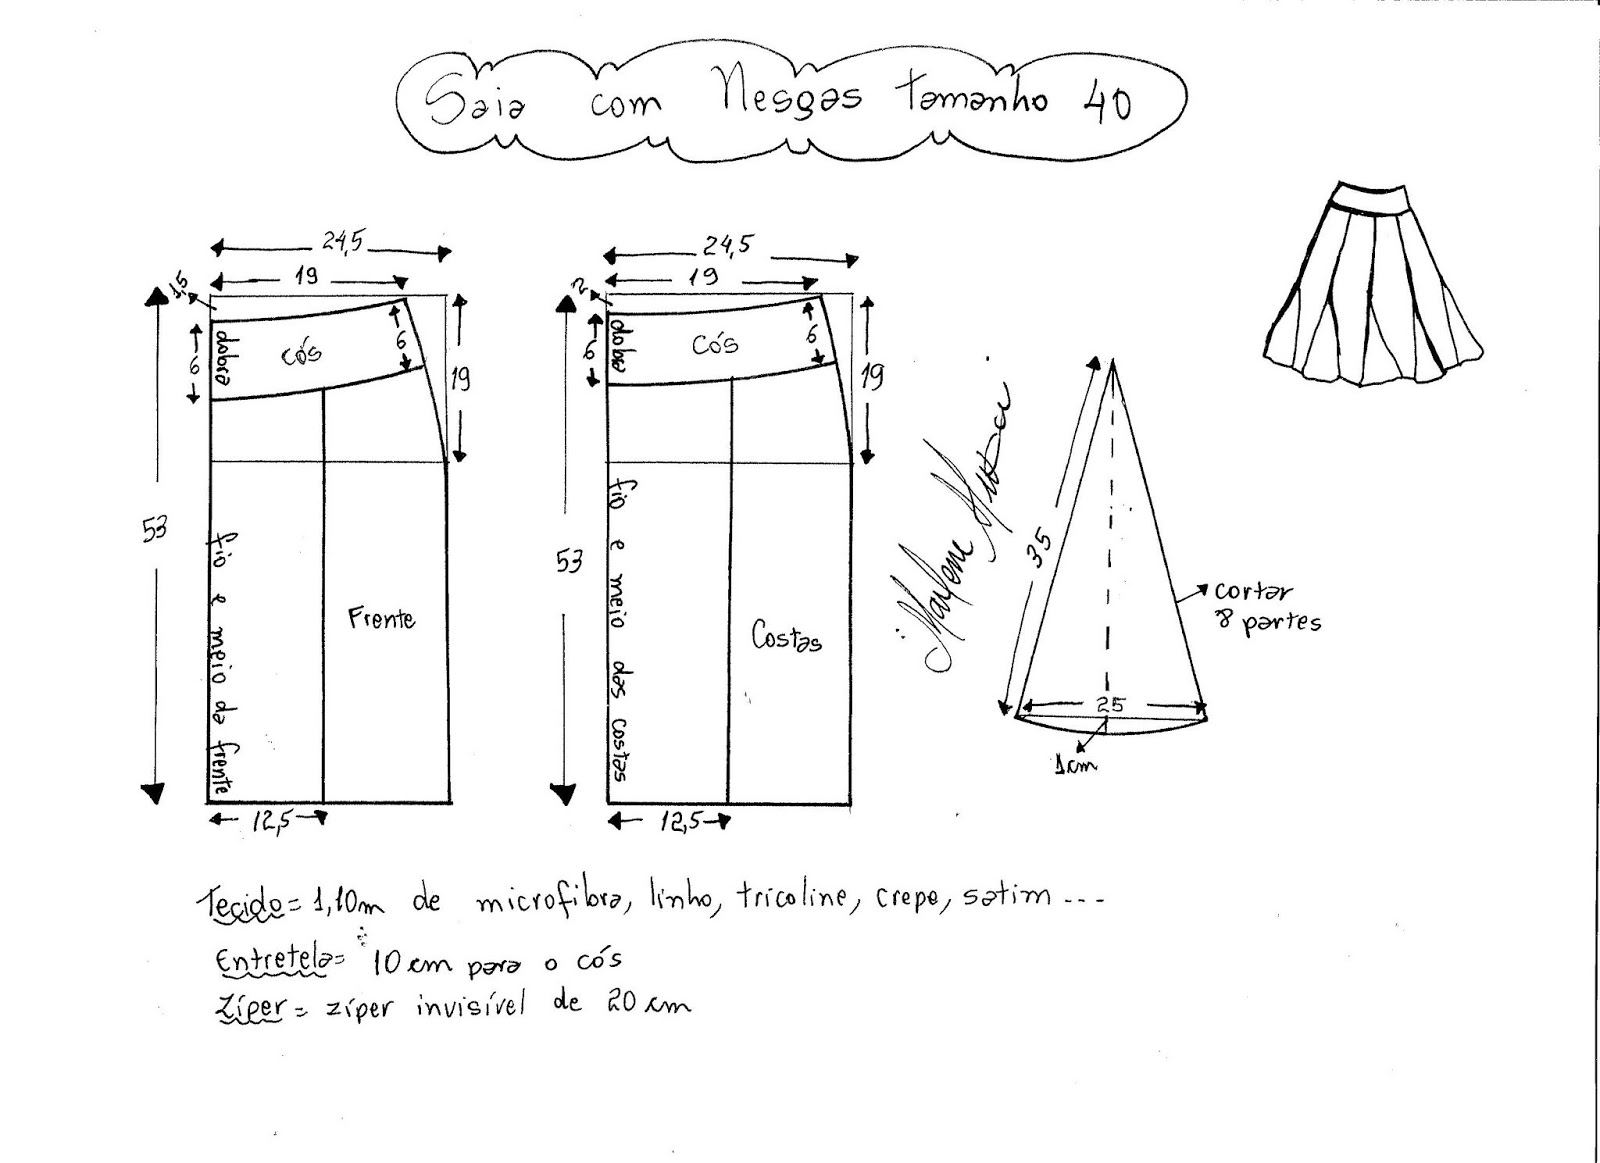 Saia com Nesgas tamanho 40
24,5
19
1,5
6
dobra
cós
6
19
53
fio e meio da frente
Frente
12,5
24,5
19
2
6
dobra
cós
6
19
53
fio e meio das costas
Costas
12,5
35
25
1cm
cortar
8 partes
Marlene
Tecido= 1,10m de microfibra, linho, tricoline, crepe, satim...
Entretela= 10 cm para o cós
Zíper= zíper invisível de 20 cm